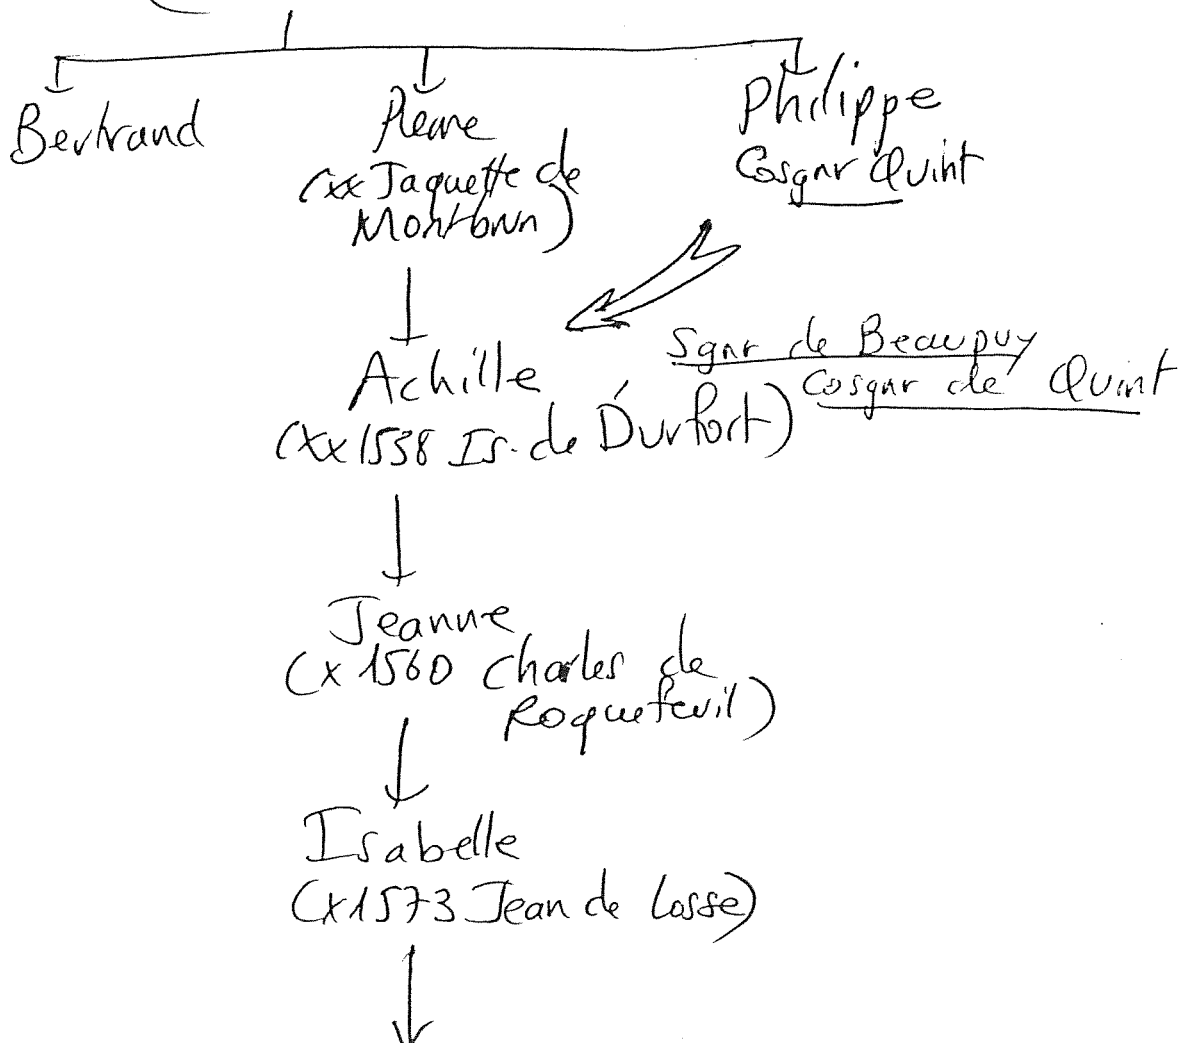 Bertrand
Pierre
(xx Jaquette de
Montbrun)
Philippe
Cosgnr Quint
Achille
(xx 1538 Is. de Durfort)
Sgnr de Beaupuy
Cosgnr de Quint
Jeanne
(x 1560 Charles de
Roquefeuil)
Isabelle
(x 1573 Jean de Losse)